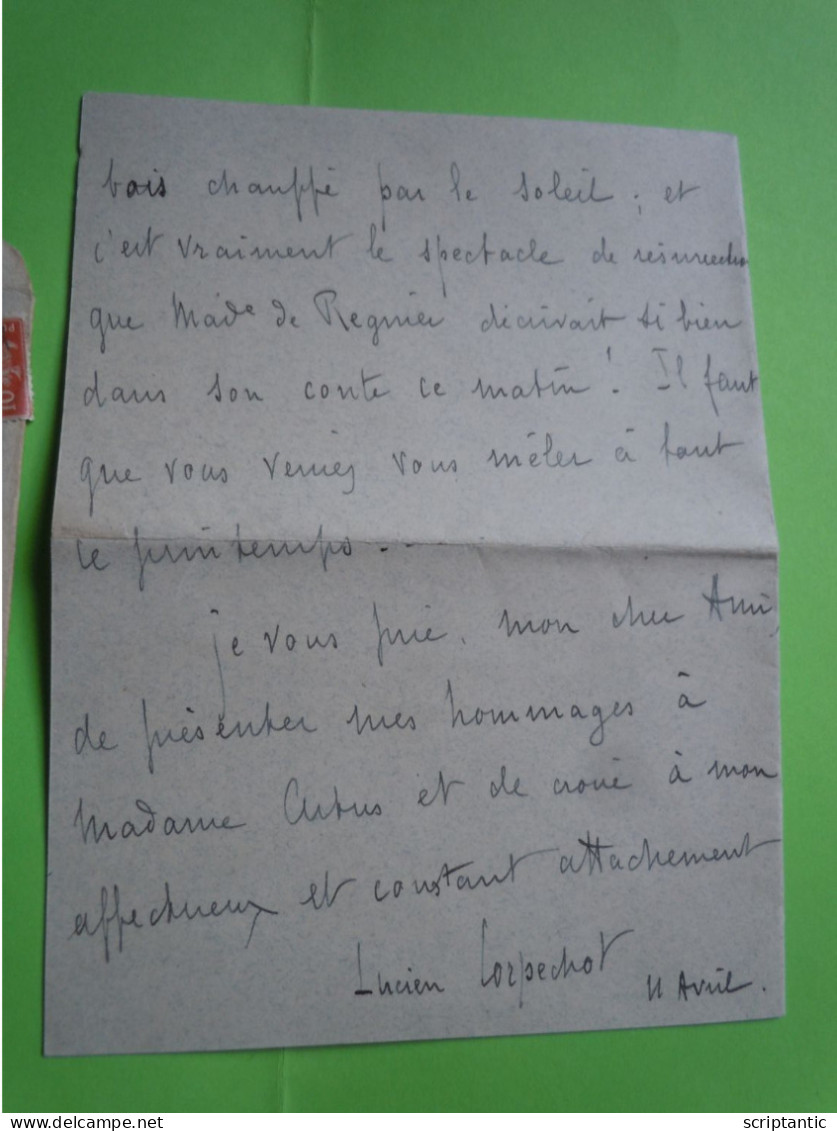 bois chauffé par le soleil ; et
c'est vraiment le spectacle de résurrection
que Made de Regnier décrivait si bien
dans son conte ce matin ! Il faut
que vous veniez vous mêler à tout
ce printemps...
je vous prie, mon cher Ami,
de présenter mes hommages à
Madame Artus et de croire à mon
affectueux et constant attachement
Lucien Corpechot
11 Avril.
10
scriptantic